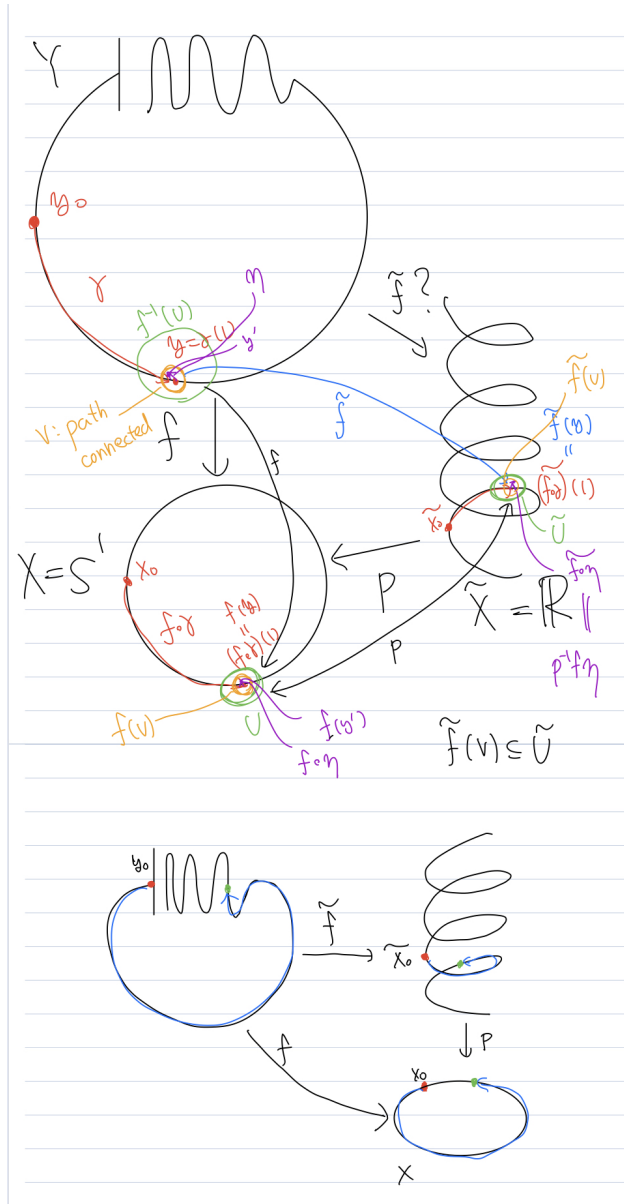 Y
y₀
γ
η
f⁻¹(U)
y=γ(1)
y'
f̃?
V: path
connected
f
f
f̃
f̃(V)
f̃(y)
=
(f∘γ)~(1)
x̃₀
Ũ
f̃∘η
X̃ = ℝ
=
p⁻¹fη
X=S¹
x₀
f∘γ
f(y)
=
(f∘γ)(1)
p
p
f(V)
U
f(y')
f∘η
f̃(V) ⊆ Ũ
y₀
f̃
x̃₀
f
p
x₀
X